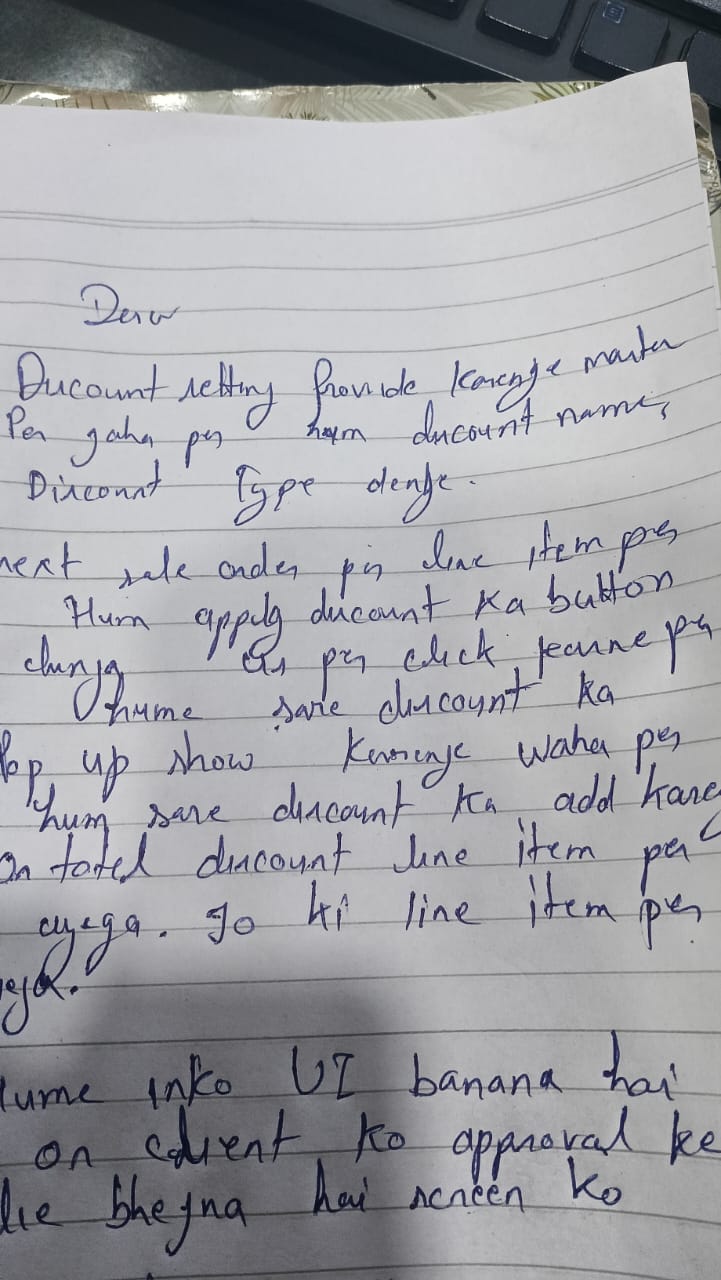 Discount setting provide Karenge master
Per jaha per hum discount name,
Discount Type denge.
next sale order per line item per
Hum apply discount Ka button
per click karne per
hume sare discount ka
Pop up show Karenge waha per
hum sare discount Ka add kare
on total discount line item per
ayega. Jo ki line item per
Hume inko UI banana hai
on client ko approval ke
lie bhejna hai screen ko